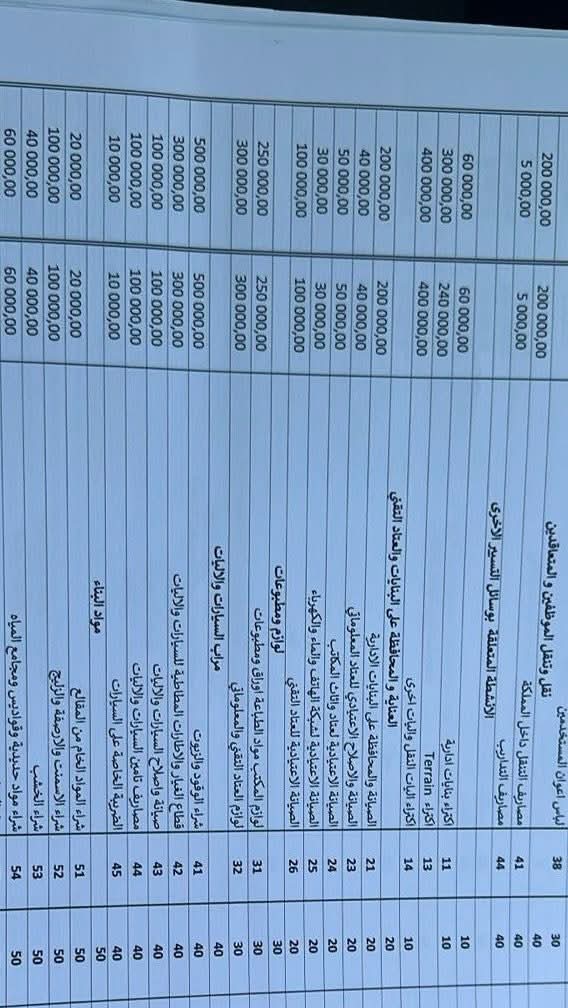 30 38 لباس اعوان المستخدمين
40 نقل وتنقل الموظفين و المتعاقدين
40 41 مصاريف التنقل داخل المملكة 200 000,00 200 000,00
40 44 مصاريف التداريب 5 000,00 5 000,00
10 الانشطة المتعلقة بوسائل التسيير الاخرى
10 11 اكتراء بنايات ادارية 60 000,00 60 000,00
13 اكتراء Terrain 240 000,00 300 000,00
10 14 اكتراء اليات النقل واليات اخرى 400 000,00 400 000,00
20 العناية و المحافظة على البنايات والعتاد التقني
20 21 الصيانة والمحافظة على البنايات الادارية 200 000,00 200 000,00
20 23 الصيانة والاصلاح الاعتيادي للعتاد المعلوماتي 40 000,00 40 000,00
20 24 الصيانة الاعتيادية لعتاد واثاث المكاتب 50 000,00 50 000,00
20 25 الصيانة الاعتيادية لشبكة الهاتف والماء والكهرباء 30 000,00 30 000,00
20 26 الصيانة الاعتيادية للعتاد التقني 100 000,00 100 000,00
30 لوازم ومطبوعات
30 31 لوازم المكتب مواد الطباعة اوراق ومطبوعات 250 000,00 250 000,00
30 32 لوازم العتاد التقني والمعلوماتي 300 000,00 300 000,00
40 مراب السيارات والاليات
40 41 شراء الوقود والزيوت 500 000,00 500 000,00
40 42 قطاع الغيار والاطارات المطاطية للسيارات والاليات 300 000,00 300 000,00
40 43 صيانة واصلاح السيارات والاليات 100 000,00 100 000,00
40 44 مصاريف تامين السيارات والاليات 100 000,00 100 000,00
40 45 الضريبة الخاصة على السيارات 10 000,00 10 000,00
50 مواد البناء
50 51 شراء المواد الخام من المقالع 20 000,00 20 000,00
50 52 شراء الاسمنت والارصفة والزليج 100 000,00 100 000,00
50 53 شراء الخشب 40 000,00 40 000,00
50 54 شراء مواد حديدية وقواديس ومجامع المياه 60 000,00 60 000,00